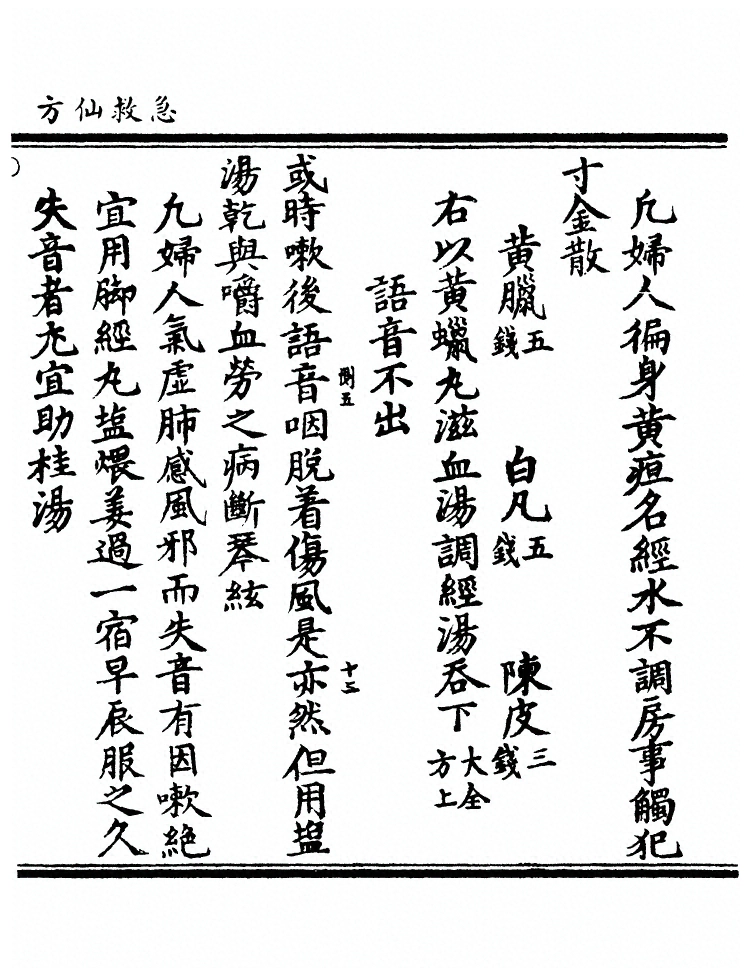 急救仙方
凡婦人徧身黄疸名經水不調房事觸犯
寸金散
黄臘五錢 白凡五錢 陳皮三錢
右以黄蠟丸滋血湯調經湯吞下大全方上
語音不出
側五 十二
或時嗽後語音咽脫着傷風是亦然但用塩
湯乾與嚼血勞之病斷琴絃
凡婦人氣虛肺感風邪而失音有因嗽絶
宜用脚經丸塩煨姜過一宿早辰服之久
失音者尤宜助桂湯